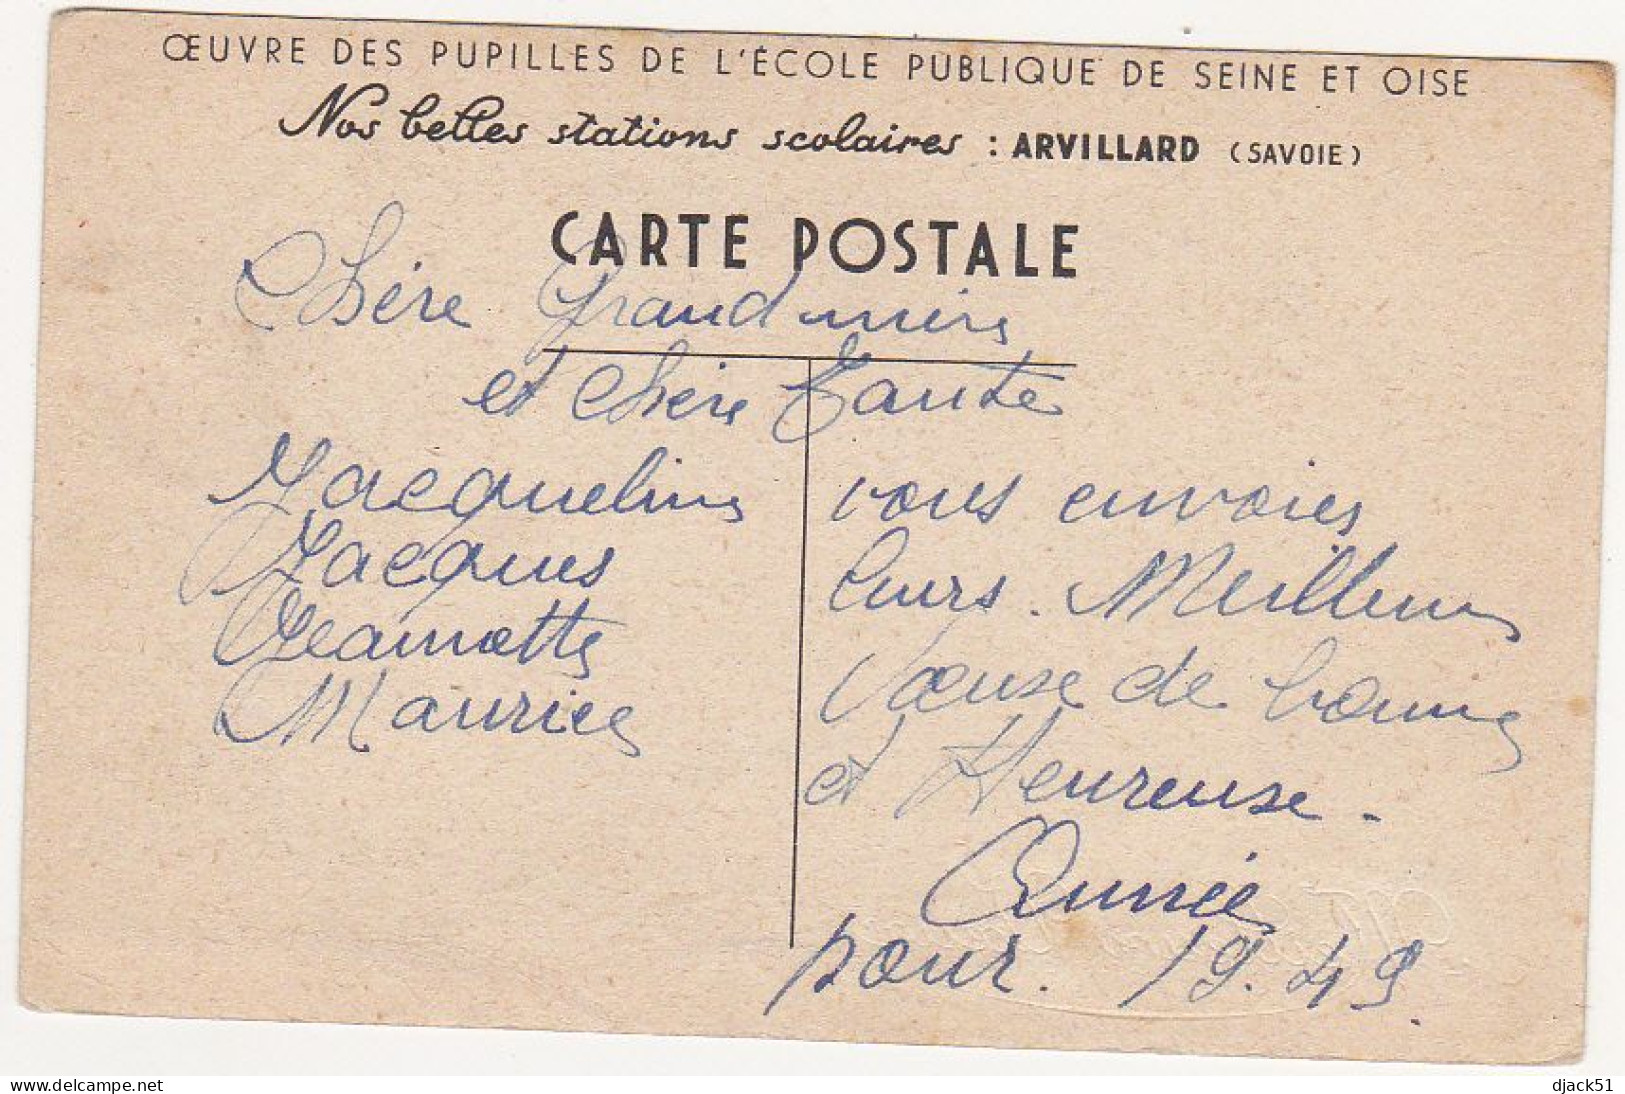 ŒUVRE DES PUPILLES DE L'ÉCOLE PUBLIQUE DE SEINE ET OISE
Nos belles stations scolaires : ARVILLARD (SAVOIE)
CARTE POSTALE
Chére Grand mère
et chére Tante
Jacqueline
Jacques
Jeannette
Maurice
vous envoies
leurs. Meilleurs
Vœuse de bonne
et Heureuse.
Année
pour. 19.49.
djack51